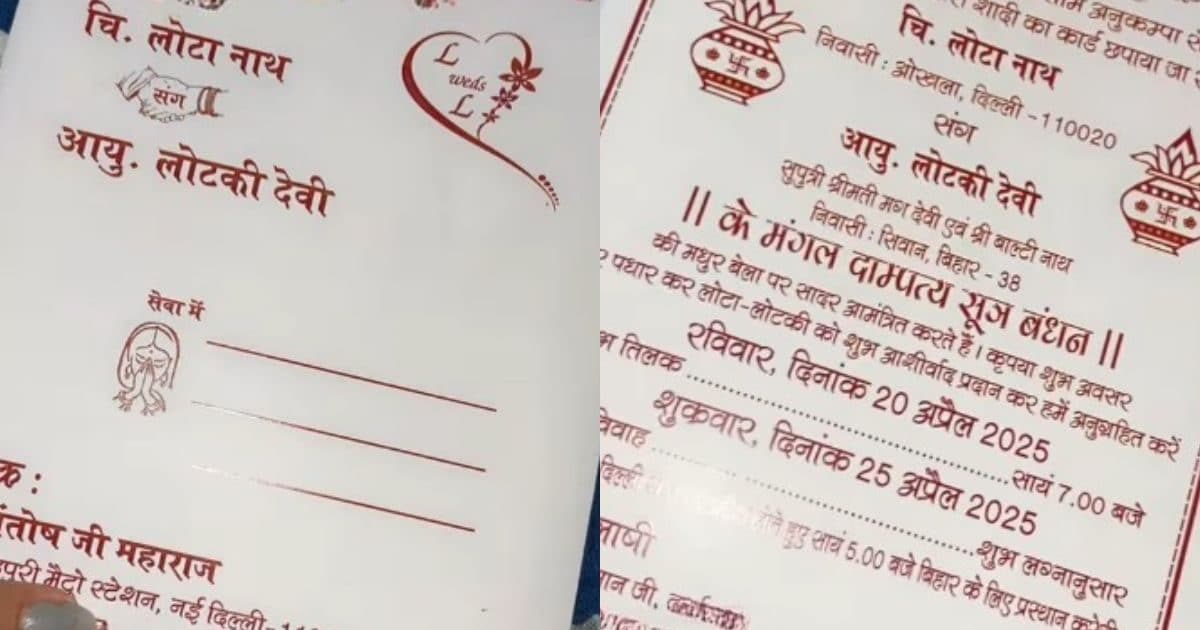 चि. लोटा नाथ
संग
आयु. लोटकी देवी
L
weds
L
सेवा में
जी महाराज
मैट्रो स्टेशन, नई दिल्ली-11
अनुकम्पा से
शादी का कार्ड छपाया जा
चि. लोटा नाथ
निवासी : ओखला, दिल्ली -110020
संग
आयु. लोटकी देवी
सुपुत्री श्रीमती मग देवी एवं श्री बाल्टी नाथ
निवासी : सिवान, बिहार - 38
|| के मंगल दाम्पत्य सूत्र बंधन ||
की मधुर बेला पर सादर आमंत्रित करते हैं। कृपया शुभ अवसर
पधार कर लोटा-लोटकी को शुभ आशीर्वाद प्रदान कर हमें अनुग्रहित करें
रविवार, दिनांक 20 अप्रैल 2025
तिलक ........................................ सायं 7.00 बजे
शुक्रवार, दिनांक 25 अप्रैल 2025
........................................ शुभ लग्नानुसार
दिल्ली होते हुए सायं 5.00 बजे बिहार के लिए प्रस्थान करेगी
जी,